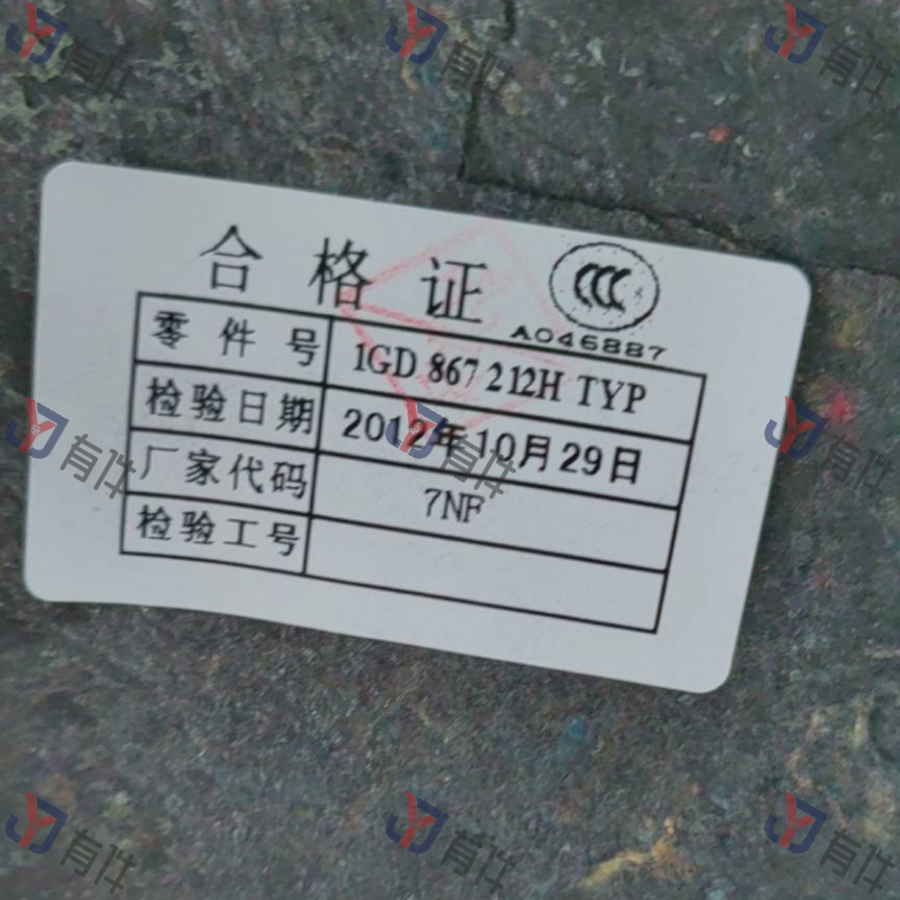 合格证
CCC
A046887
零件号 1GD 867 212H TYP
检验日期 2012年10月29日
厂家代码 7NF
检验工号
有件
有件
有件
有件
有件
有件
有件
有件
有件